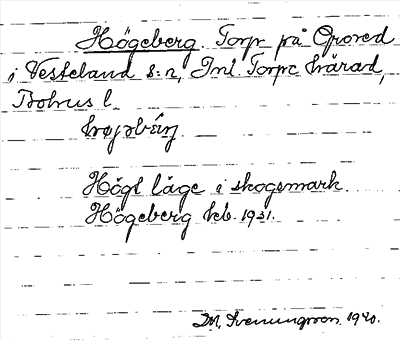 Högeberg. Torp på Groved
i Vesteland s:n, Inl. Torpe härad,
Bohus l.
Högt läge i skogsmark.
Högeberg kb. 1931.
M. Svenungsson. 1940.